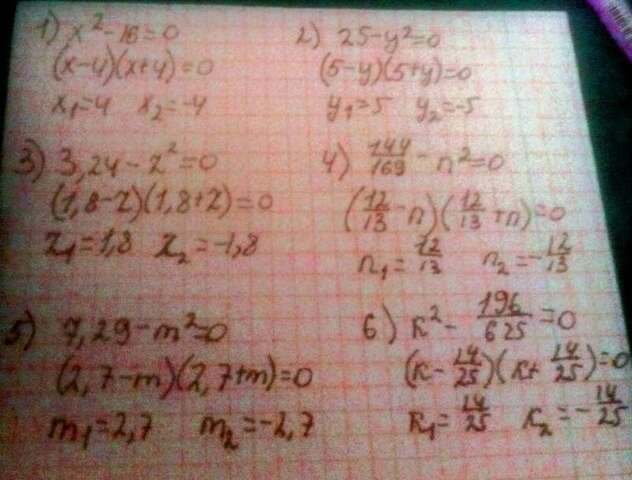 1) x² - 16 = 0
(x-4)(x+4) = 0
x₁=4 x₂=-4
2) 25-y²=0
(5-y)(5+y)=0
y₁=5 y₂=-5
3) 3,24 - z² = 0
(1,8-z)(1,8+z) = 0
z₁=1,8 z₂=-1,8
4) 144/169 - n² = 0
(12/13 - n)(12/13 + n) = 0
n₁ = 12/13 n₂ = -12/13
5) 7,29-m²=0
(2,7-m)(2,7+m)=0
m₁=2,7 m₂=-2,7
6) к² - 196/625 = 0
(к - 14/25)(к + 14/25) = 0
к₁ = 14/25 к₂ = -14/25